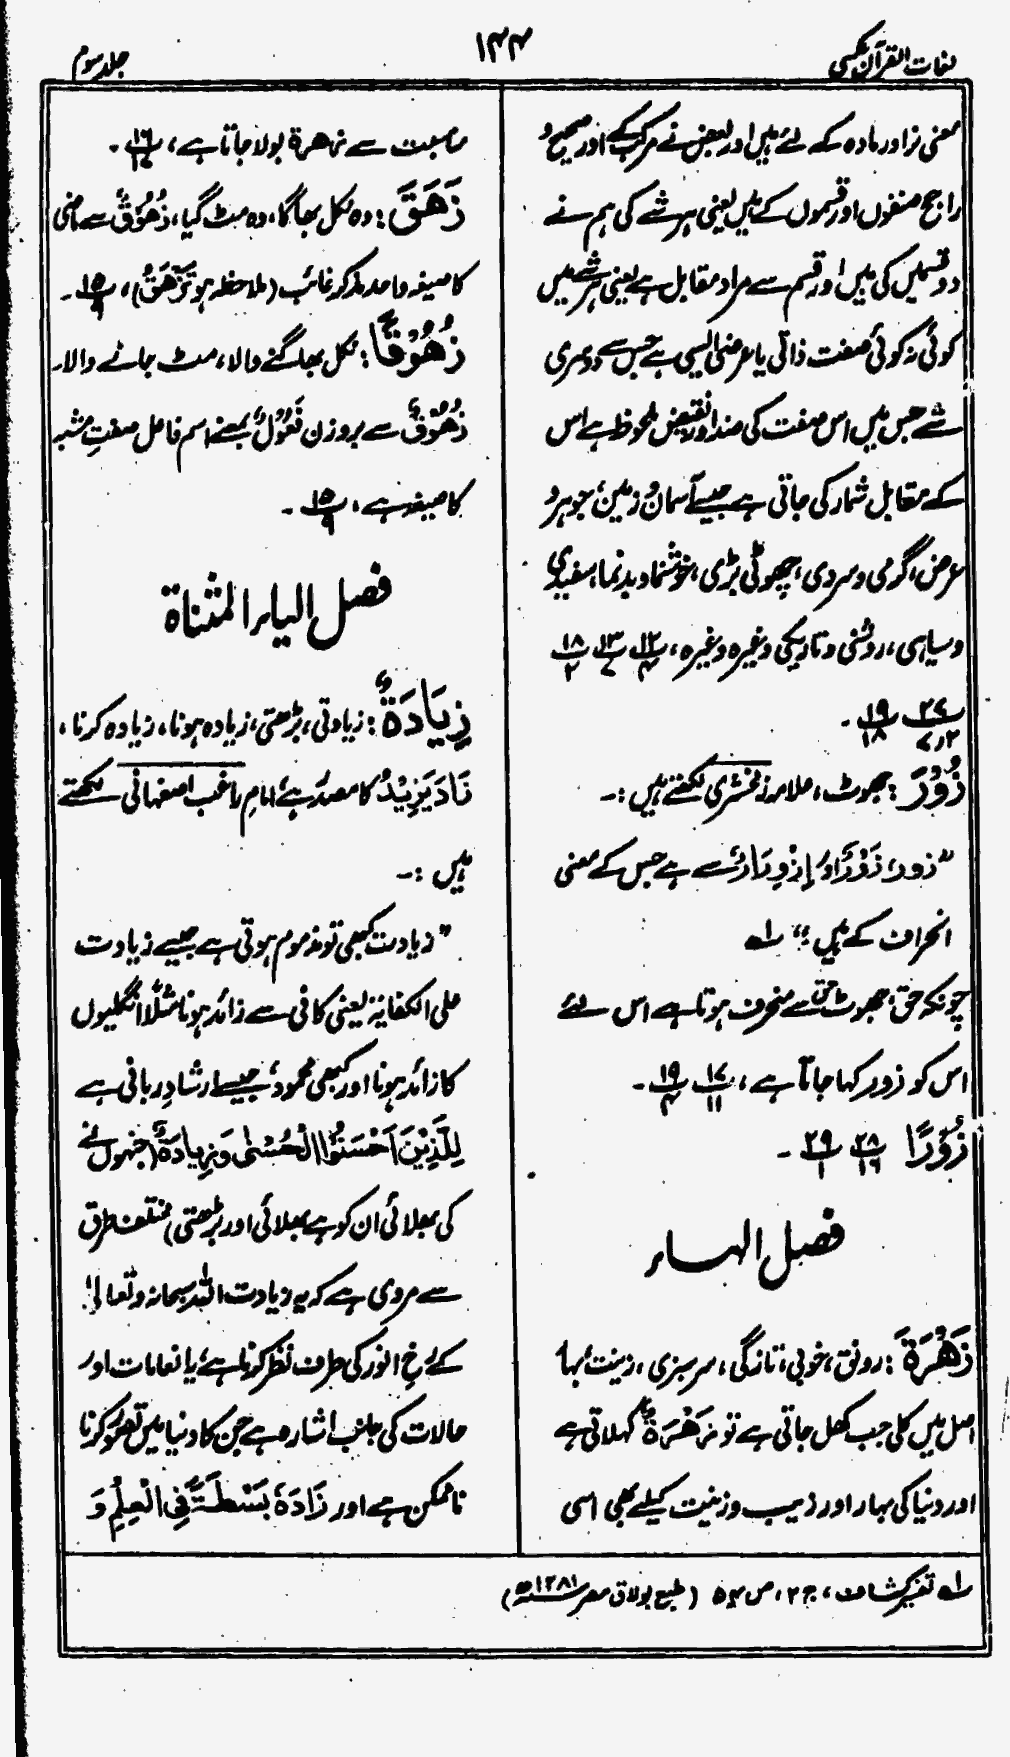 لغات القرآن عکسی
۱۴۴
جلد سوم
معنی نر اور مادہ کے لئے ہیں اور بعض نے مرکب کے اور صحیح و
راجح صنفوں اور قسموں کے ہیں یعنی ہر شے کی ہم نے
دو قسمیں کی ہیں اور قسم سے مراد مقابل ہے یعنی ہر شے میں
کوئی نہ کوئی صفت ذاتی یا عرضی ایسی ہے جس سے دوسری
شے جس میں اس صفت کی ضد اور نقیض ملحوظ ہے اس
کے مقابل شمار کی جاتی ہے جیسے آسمان و زمین، جوہر و
عرض، گرمی و سردی، چھوٹی بڑی، خوشنما و بدنما، سفیدی
و سیاہی، روشنی و تاریکی وغیرہ وغیرہ، پ۱۲/۴ پ۱۳/۷ پ۱۸/۲
پ۲۷/۷٫۲ پ۱۹/۱۸ ۔
زُوْرَ : جھوٹ، علامہ زمخشری لکھتے ہیں :۔
”زور، زَوْرٌ اور اِزْوِرَارٌ سے ہے جس کے معنی
انحراف کے ہیں“ لہ
چونکہ حق جھوٹ حق سے منحرف ہوتا ہے اس لئے
اس کو زور کہا جاتا ہے، پ۱۷/۱۱ پ۱۹/۴ ۔
زُوْرًا پ۲۸/۱ پ۲۹/۱ ۔
فصل الہاء
زَهْرَةَ : رونق، خوبی، تازگی، سرسبزی، زینت، بہار
اصل میں کلی جب کھل جاتی ہے تو زَهْرَةٌ کہلاتی ہے
اور دنیا کی بہار اور زیب و زینت کیلئے بھی اسی
مناسبت سے زهرة بولا جاتا ہے، پ۱۶/۱۷ ۔
زَهَقَ : وہ نکل بھاگا، وہ مٹ گیا، زُهُوْقٌ سے ماضی
کا صیغہ واحد مذکر غائب (ملاحظہ ہو تَزْهَقَ)، پ۱۵/۹ ۔
زُهُوْقًا : نکل بھاگنے والا، مٹ جانے والا۔
زُهُوْقٌ سے بروزن فَعُوْلٌ بمعنے اسم فاعل صفتِ مشبہ
کا صیغہ ہے، پ۱۵/۹ ۔
فصل الیاء المثناة
زِیَادَةٌ : زیادتی، بڑھتی، زیادہ ہونا، زیادہ کرنا،
زَادَ یَزِیْدُ کا مصدر ہے، امام راغب اصفہانی لکھتے
ہیں :۔
”زیادت کبھی تو مذموم ہوتی ہے جیسے زیادت
علی الکفایة یعنی کافی سے زائد ہونا مثلاً انگلیوں
کا زائد ہونا اور کبھی محمود، جیسے ارشادِ ربانی ہے
لِلَّذِیْنَ اَحْسَنُوا الْحُسْنٰی وَ زِیَادَةٌ (جنہوں نے
کی بھلائی ان کو ہے بھلائی اور بڑھتی) مختلف طرق
سے مروی ہے کہ یہ زیادت اللہ سبحانہ وتعالیٰ
کے رُخِ انور کی طرف نظر کرنا ہے، یا انعامات اور
حالات کی جانب اشارہ ہے جن کا دنیا میں تصور کرنا
ناممکن ہے اور زَادَهٗ بَسْطَةً فِی الْعِلْمِ وَ
لہ تفسیر کشاف، ج۲، ص ۵۴ (طبع بولاق مصر ۱۲۸۱ھ)